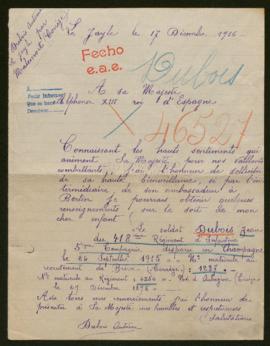 La Jayle le 17 Décembre 1916
Fecho
e.a.e.
Dubois
A sa Majesté
Alphonse XIII roi d'Espagne
46527
Connaissant les hauts sentiments qui
animent Sa Majesté pour nos vaillants
combattants, j'ai l'honneur de solliciter
de sa haute bienveillance, si par l'in-
termédiaire de son ambassadeur à
Berlin je pourrais obtenir quelques
renseignements sur le sort de mon
cher enfant
Le soldat Dubois Jean
du 412e Régiment d'Infanterie
5me Compagnie disparu en Champagne
le 26 Septembre 1915 N° matricule au
recrutement de Brive (Corrèze)
N° matricule au Régiment
le 27 Décembre 1896
A de tous mes remerciements j'ai l'honneur de
présenter à Sa Majesté mes humbles et respectueuses
Salutations
Dubois Antoine